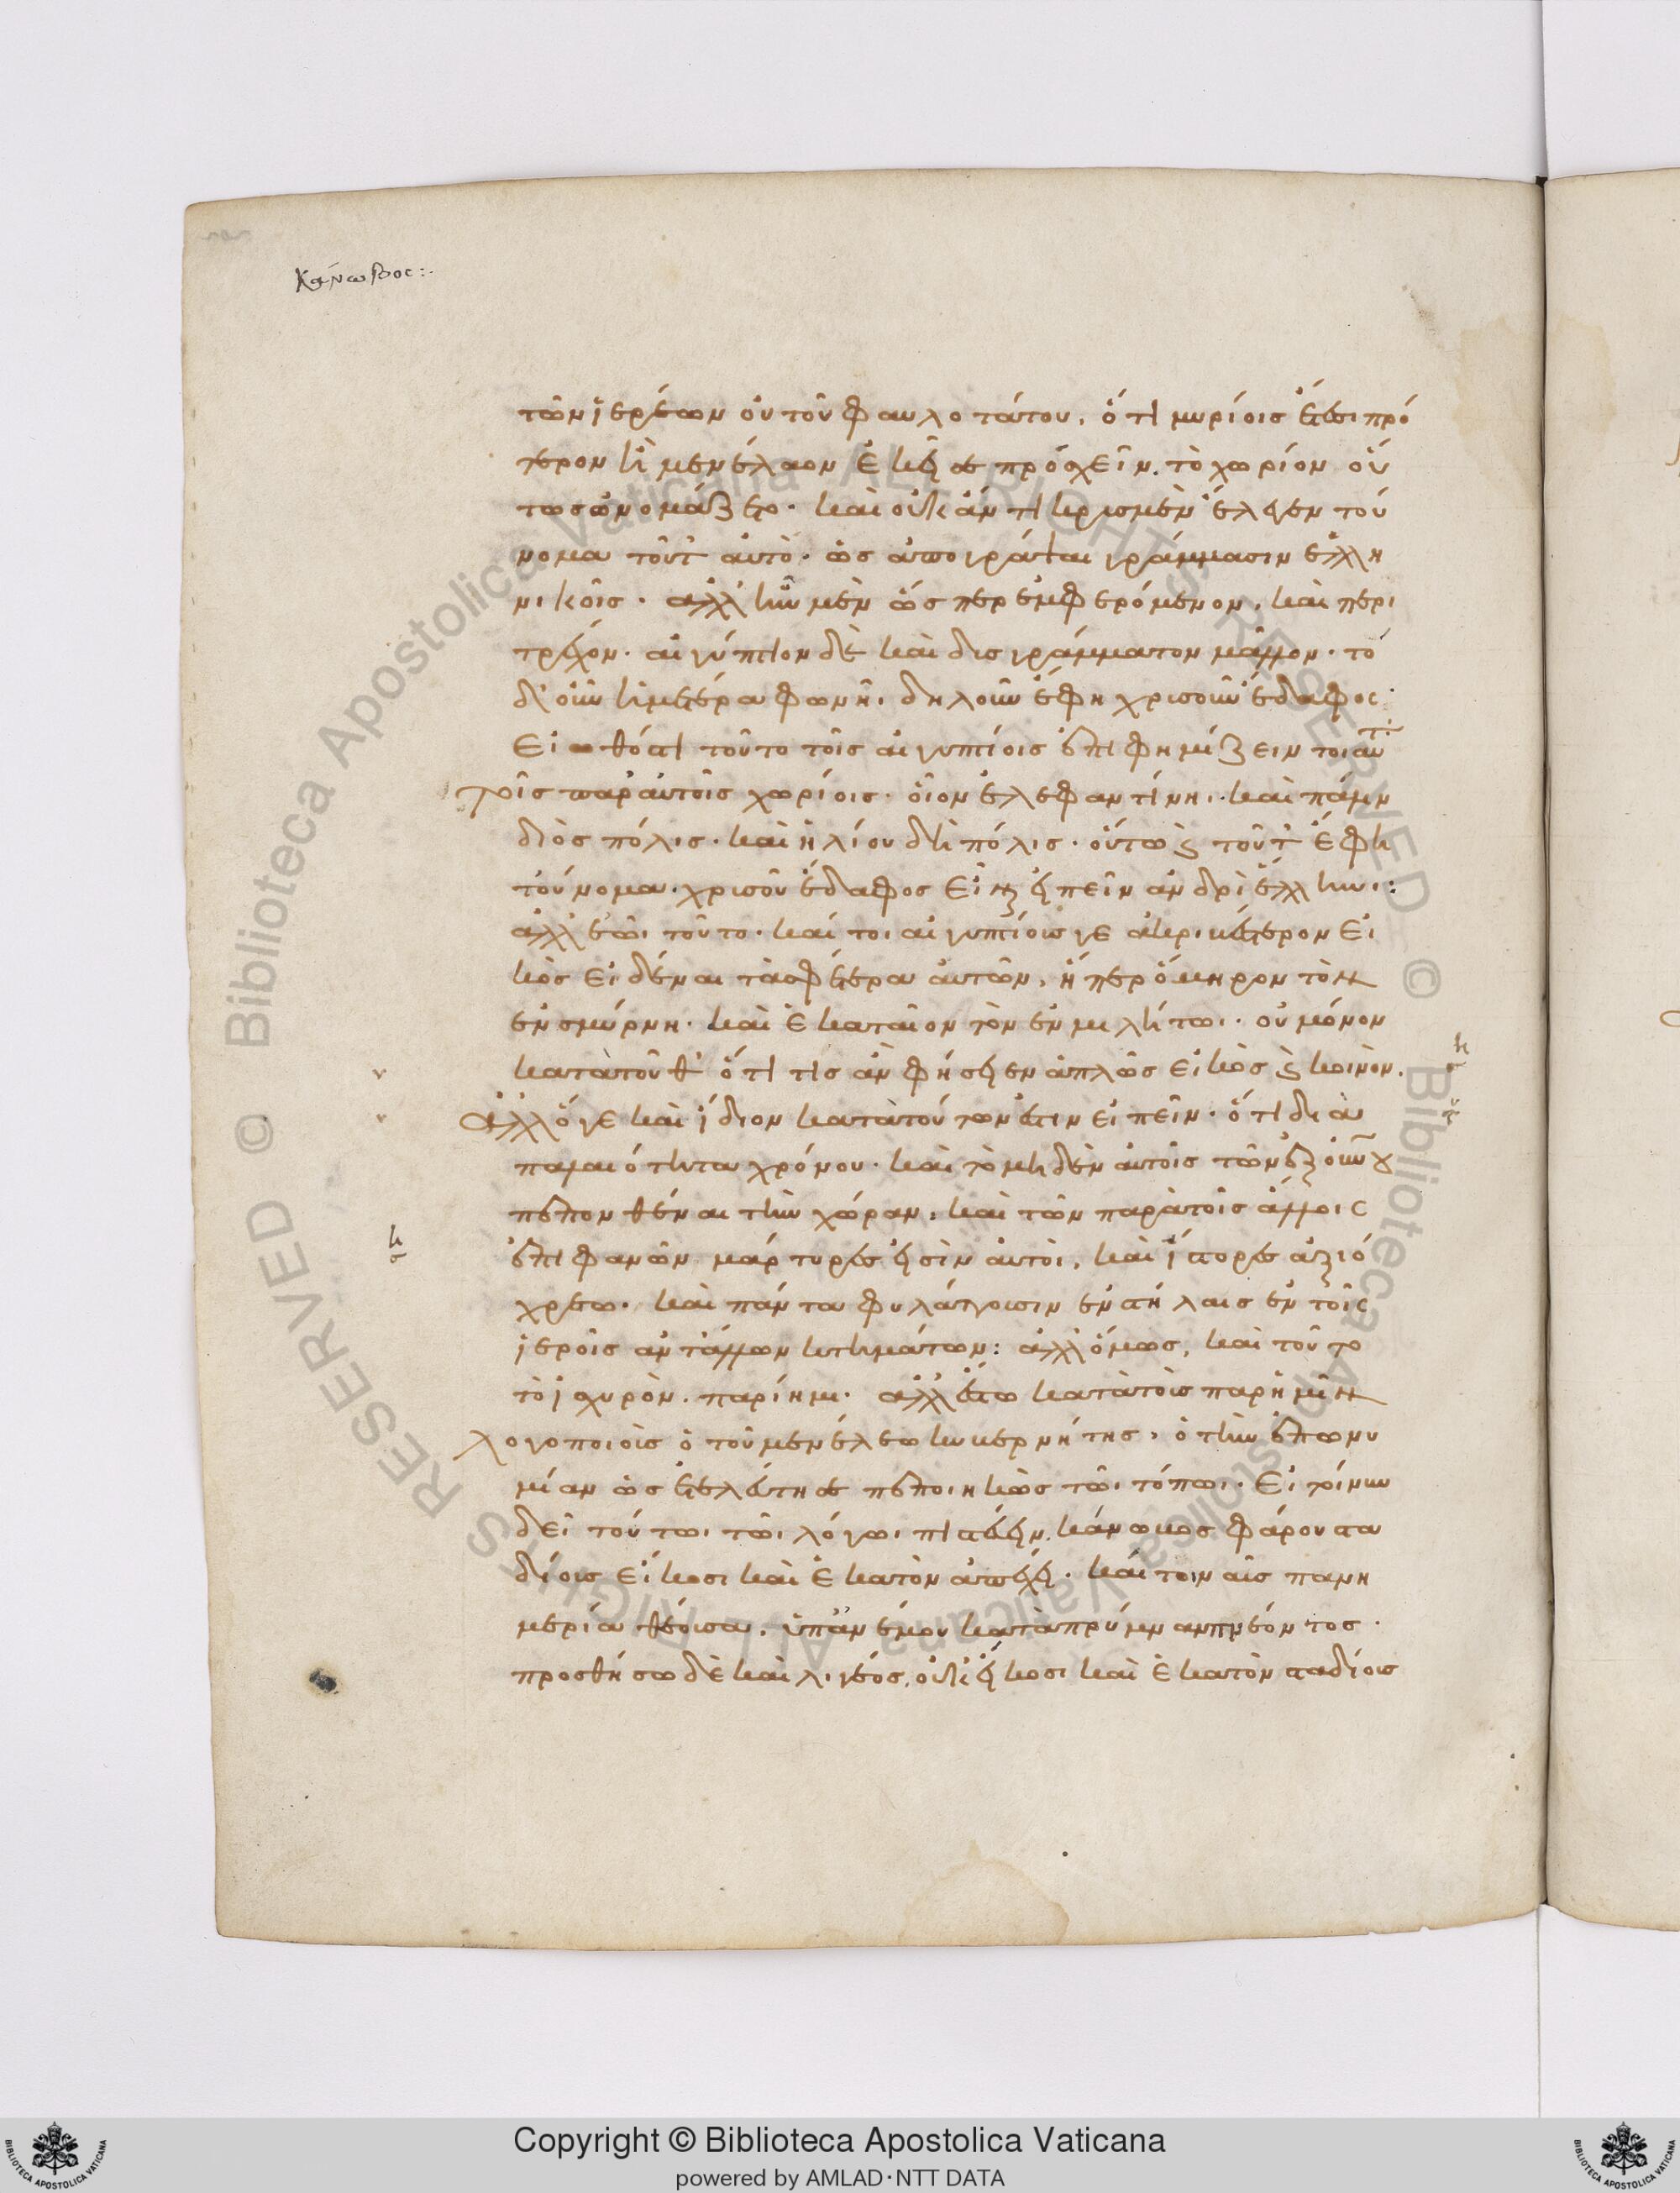 Κάνωβος :.
τῶν ἱερέων οὐ τοῦ φαυλοτάτου, ὅτι μυρίοις ἔτεσι πρό
τερον ἢ μενέλαον ἐκεῖσε προσχεῖν. τὸ χωρίον οὕ
τως ὠνομάζετο. καὶ οὐκ ἄντικρυς μὲν ἔλεγεν τού
νομα τοῦτ αὐτὸ. ὡς ἀπογράψαι γράμμασιν ἑλλη
νικοῖς. ἀλλ ἦν μὲν ὥσπερ ἐμφερόμενον, καὶ περι
τρέχον. αἰγύπτιον δὲ καὶ δυσγράμματον μᾶλλον. τὸ
δ' οὖν ἡμετέρα φωνῆ, δηλοῦν ἔφη χρυσοῦν ἔδαφος.
εἰωθός τι τοῦτο τοῖς αἰγυπτίοις ἐπιφημίζειν τοιαῦτ
τοῖς παρ αὐτοῖς χωρίοις. οἷον ἐλεφαντίνη. καὶ πάλιν
διὸς πόλις. καὶ ἡλίου δὴ πόλις. οὕτω καὶ τοῦτ ἔφη
τούνομα. χρυσοῦν ἔδαφος εἶναι εἰπεῖν ἀνδρὶ ἕλληνι:
ἀλλ ἐῶι τοῦτο. καίτοι αἰγυπτίους γε ἀκριβέστερον εἰ
κὸς εἰδέναι τὰ σφέτερα αὐτῶν, ἤπερ ὅμηρον τὸν
ἐν σμύρνη. καὶ ἑκαταῖον τὸν ἐν μιλήτωι. οὐ μόνον
κατὰ τοῦθ' ὅ τι τις ἂν φήσειεν ἁπλῶς εἰκὸς καὶ κοινὸν.
ἀλλ ὅ γε καὶ ἴδιον κατὰ τούτων ἔστιν εἰπεῖν. ὅτι διὰ
παλαιότητα χρόνου. καὶ τὸ μηδὲν αὐτοῖς τῶν ἐξ οὗ
πεπονθέναι τὴν χώραν, καὶ τῶν παρὰ τοῖς ἄλλοις
ἐπιφανῶν μάρτυρές εἰσιν αὐτοὶ, καὶ ἵστορες ἀξιό
χρεω. καὶ πάντα φυλάττουσιν ἐν στήλαις ἐν τοῖς
ἱεροῖς ἀντ ἄλλων κτημάτων: ἀλλ ὅμως, καὶ τοῦτο
τὸ ἰσχυρὸν. παρίημι. ἀλλ ἔστω κατὰ τοὺς παρ ἡμῖν
λογοποιοὺς ὁ τοῦ μενέλεω κυβερνήτης, ὁ τὴν ἐπωνυ
μίαν ὡς ἐτελεύτησε πεποιηκὼς τῶι τόπωι. εἰ τοίνυν
δεῖ τούτωι τῶι λόγωι πιστεύειν. κάνωβος φάρου στα
δίους εἴκοσι καὶ ἑκατὸν ἀπέχει. καίτοι ναῦς πανη
μερία θέουσα, ὑπ ἀνέμου κατὰ πρύμναν πνέοντος.
προσθήσω δὲ καὶ λιγέος. οὐκ εἴκοσι καὶ ἑκατὸν σταδίους